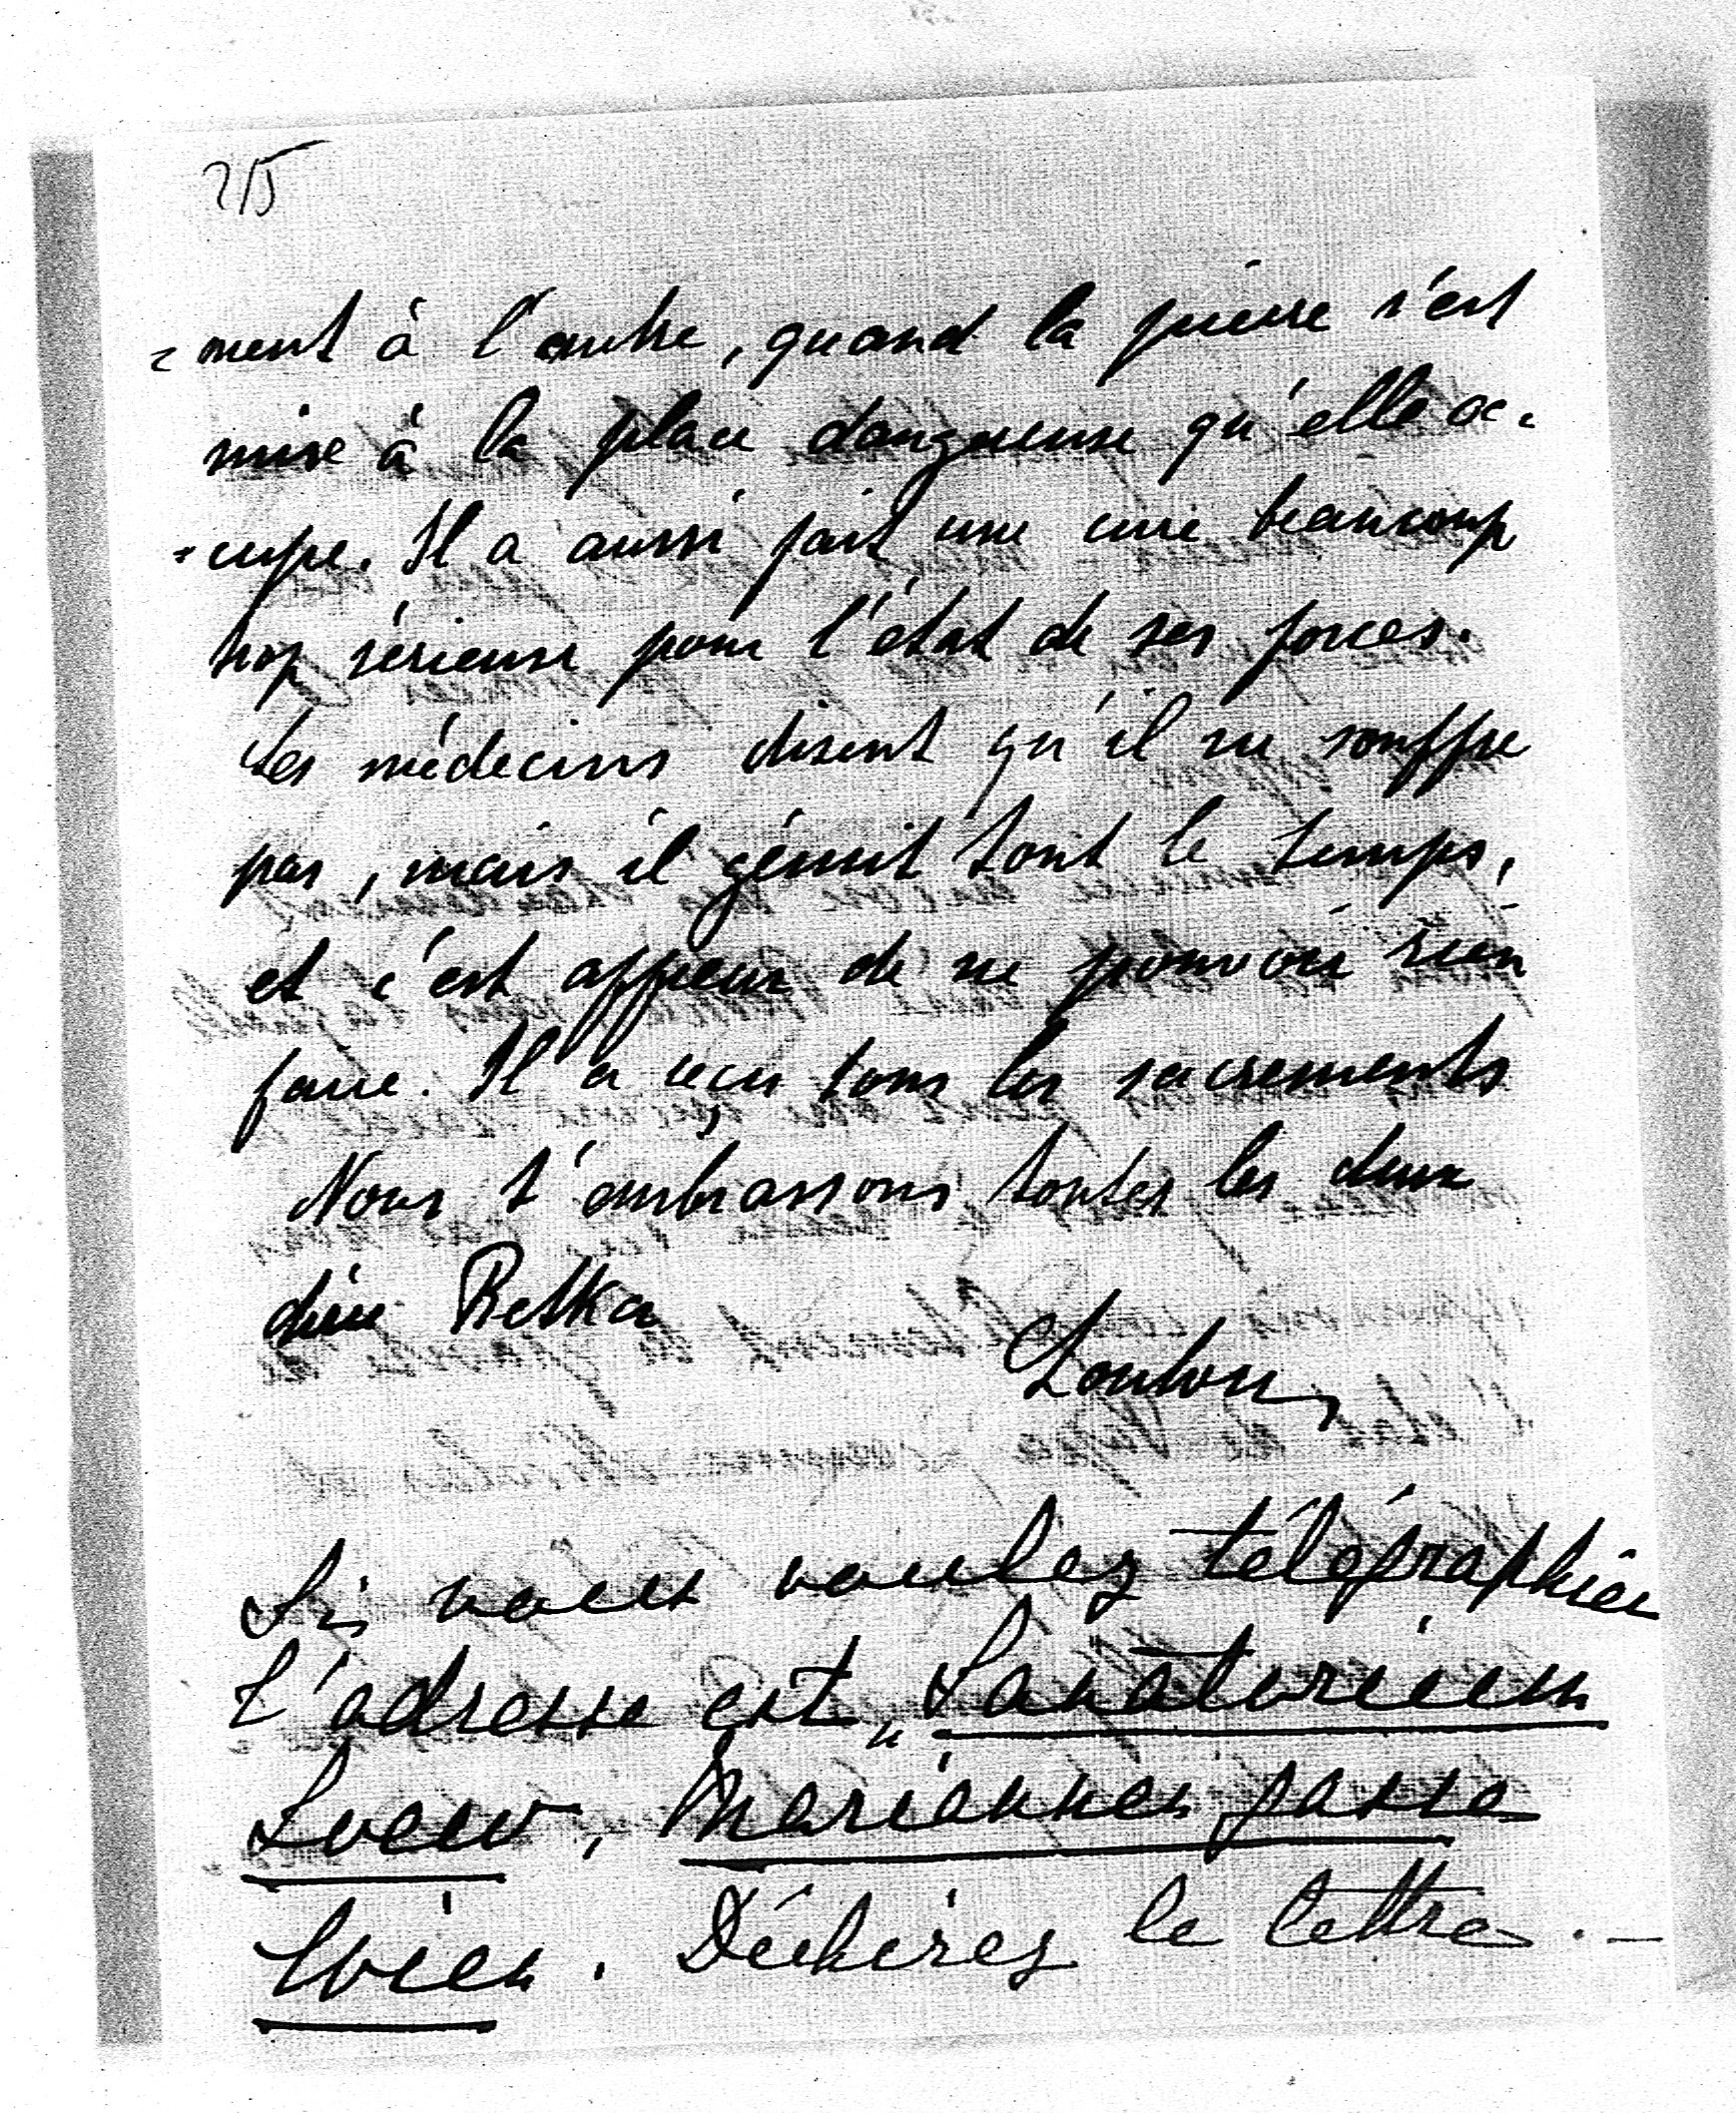 215
-ment à l'autre, quand la pierre s'est
mise à la place dangereuse qu'elle oc-
-cupe. Il a aussi fait une cure beaucoup
trop sérieuse pour l'état de ses forces.
Les médecins disent qu'il ne souffre
pas, mais il gémit tout le temps,
et c'est affreux de ne pouvoir rien
faire. Il a reçu tous les sacrements
Nous t'embrassons toutes les deux
chère Retka
Loulou
Si vous voulez télégraphier
l'adresse est „Sanatorium
Loew, Mariannengasse
Wien. Déchirez la lettre. —